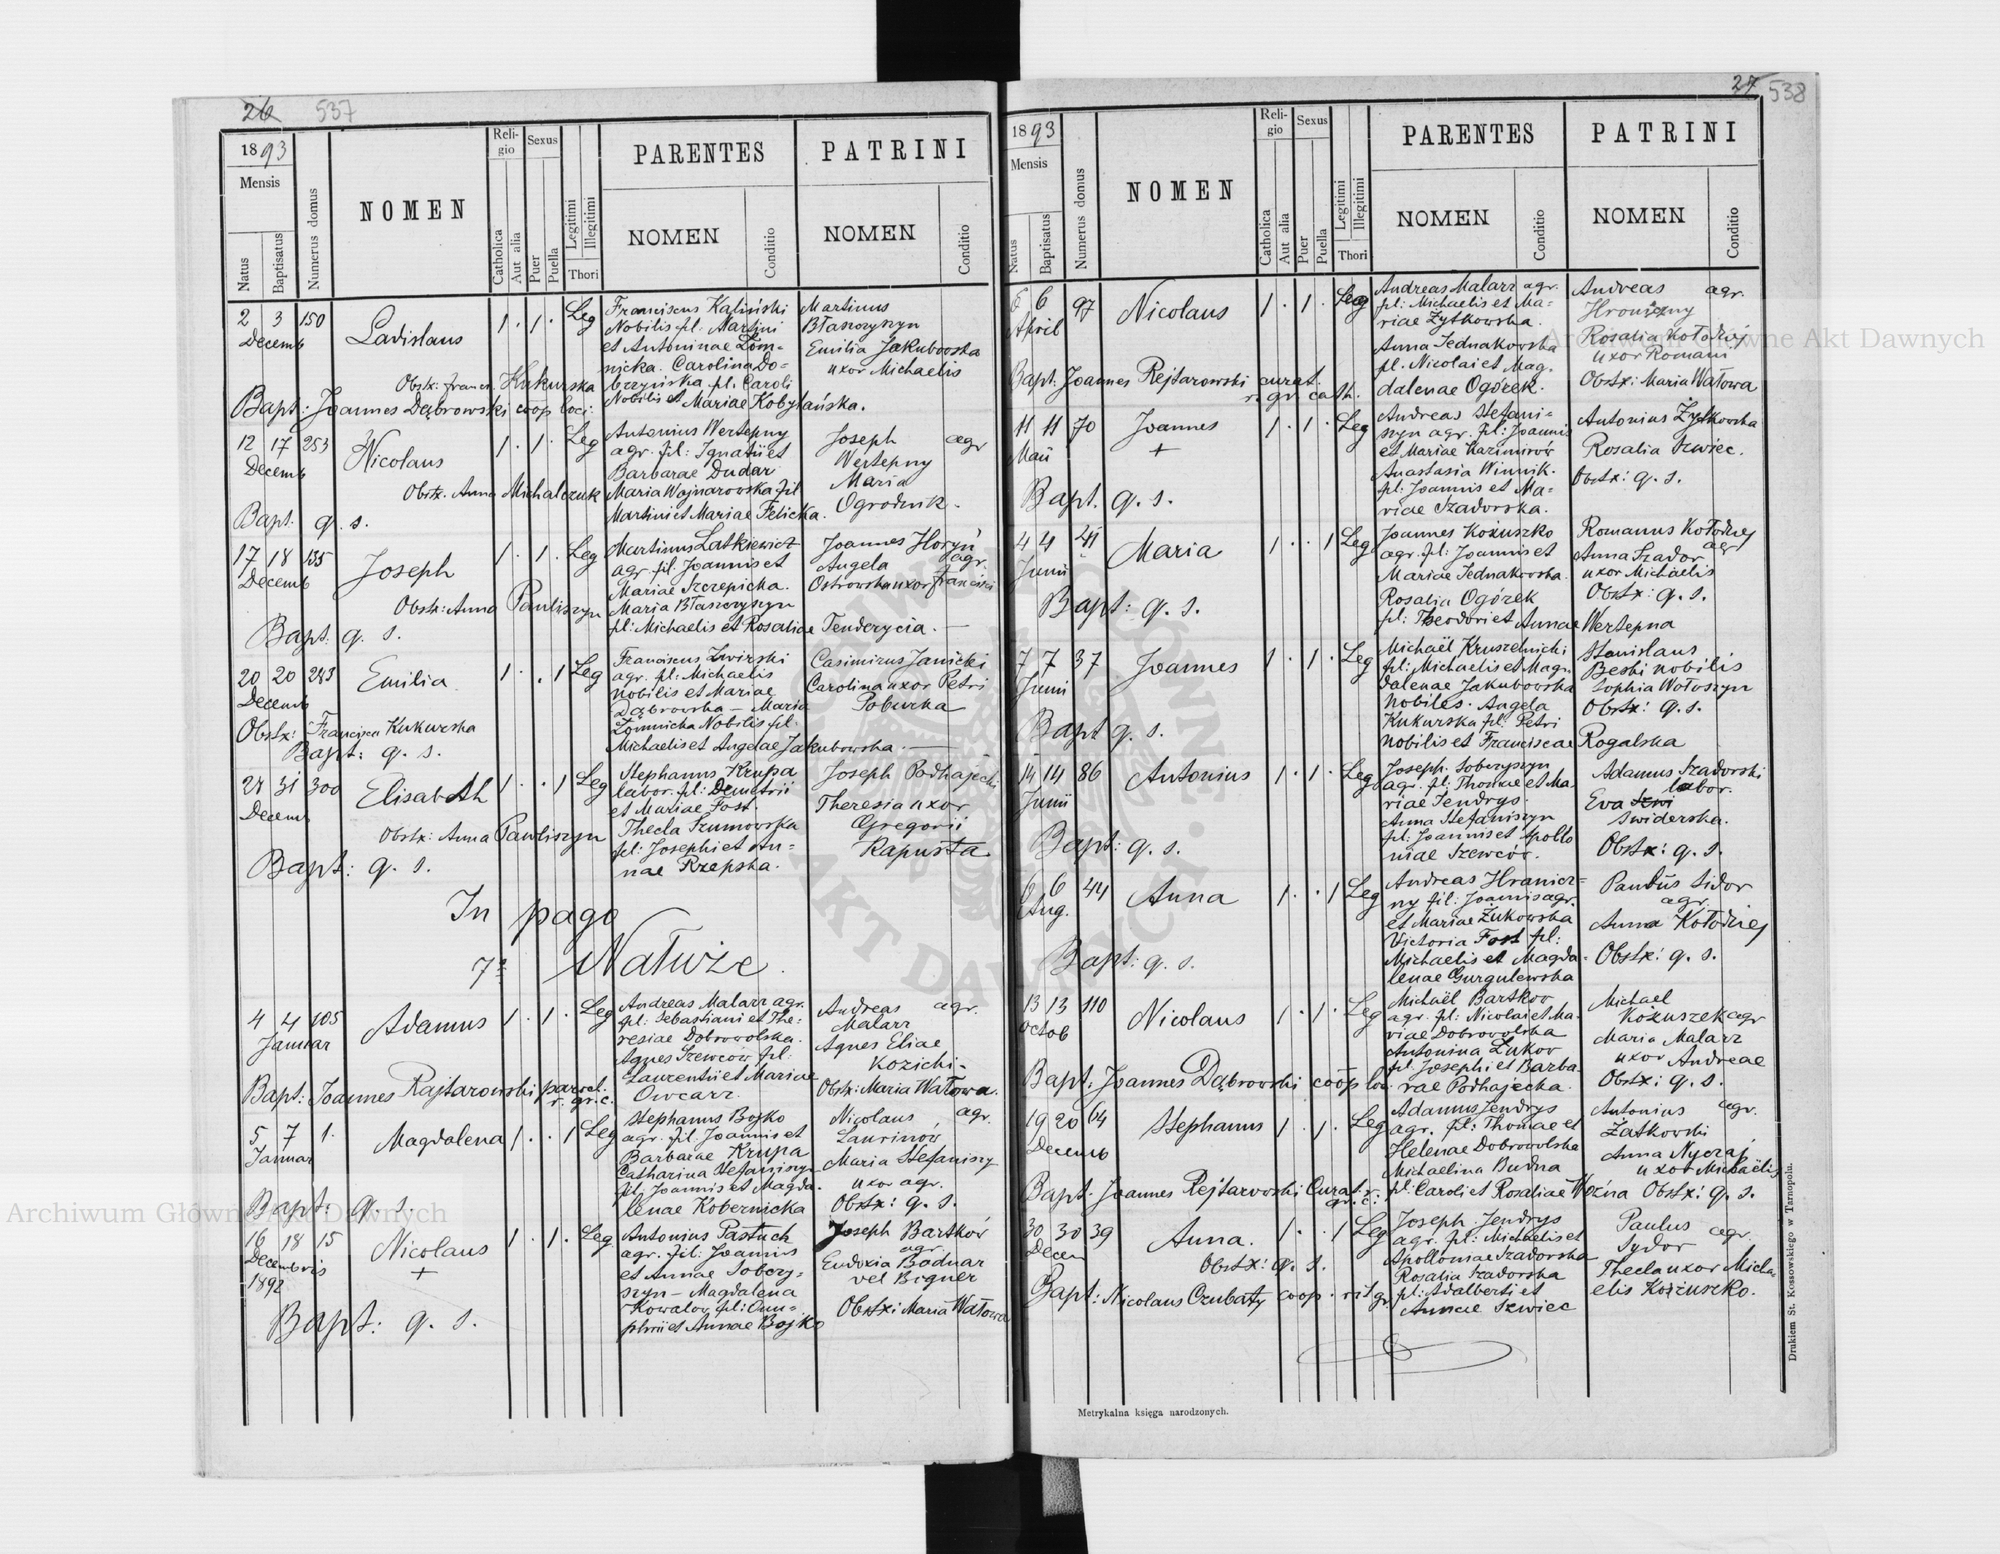 26 537
1893
Mensis
Natus
Baptisatus
Numerus domus
NOMEN
Religio
Catholica
Aut alia
Sexus
Puer
Puella
Legitimi
Illegitimi
Thori
PARENTES
NOMEN
Conditio
PATRINI
NOMEN
Conditio
2 3 150
Decemb
Ladislaus
1 . 1 . Leg
Franciscus Kaliński
Nobilis fil. Martini
et Antoninae Łom-
nicka. Carolina Do-
brzyńska fil. Caroli
Nobilis et Mariae Kobylańska.
Martinus
Błaszczyszyn
Emilia Jakubowska
uxor Michaelis
Obstx: Francis. Kukurska
Bapt: Joannes Dąbrowski coop loci:
12 17 253
Decemb
Nicolaus
1 . 1 . Leg
Antonius Wertepny
agr. fil: Ignatii et
Barbarae Dudar
Maria Wojnarowska fil
Martini et Mariae Felicka.
Joseph agr
Wertepny
Maria
Ogrodnik.
Obstx. Anna Michalczuk
Bapt. q. s.
17 18 135
Decemb
Joseph
1 . 1 . Leg
Martinus Latkiewicz
agr. fil. Joannis et
Mariae Szczepicka.
Maria Błaszczyszyn
fil: Michaelis et Rosaliae Tenderycia.
Joannes Horyń
agr.
Angela
Ostrowska uxor Francisci
Obstx: Anna Pawliszyn
Bapt. q. s.
20 20 243
Decemb
Emilia
1 . . 1 Leg
Franciscus Zwirski
agr. fil: Michaelis
nobilis et Mariae
Dąbrowska – Maria
Łomnicka Nobilis fil.
Michaelis et Angelae Jakubowska.
Casimirus Janicki
Carolina uxor Petri
Poburka
Obstx: Francisca Kukurska
Bapt: q. s.
28 31 300
Decemb
Elisabeth
1 . . 1 Leg
Stephanus Krupa
labor. fil: Demetrii
et Mariae Fost.
Thecla Szumowska
fil: Josephi et An-
nae Rzepska.
Joseph Podhajecki
Theresia uxor
Gregorii
Kapusta
Obstx: Anna Pawliszyn
Bapt: q. s.
In pago
Nałuże
4 4 105
Januar
Adamus
1 . 1 . Leg
Andreas Malarz agr.
fil: Sebastiani et The-
resiae Dobrowolska.
Agnes Szewców fil:
Laurentii et Mariae
Owcarz.
Andreas agr.
Malarz
Agnes Eliae
Kozicki.
Obstx: Maria Watowa.
Bapt: Joannes Rajtarowski paroch.
r. gr. c.
5 7 1.
Januar
Magdalena
1 . . 1 Leg
Stephanus Bojko
agr. fil. Joannis et
Barbarae Krupa
Catharina Stefaniszyn
fil Joannis et Magda-
lenae Kobernicka
Nicolaus agr.
Laurinów
Maria Stefaniszy
uxor agr.
Obstx: q. s.
Bapt: q. s.
16 18 15
Decembris
1892
Nicolaus
+
1 . 1 . Leg
Antonius Pastuch
agr. fil. Joannis
et Annae Sobczy-
szyn – Magdalena
Kowalow fil: Onu-
phrii et Annae Bojko
Joseph Bartków
agr.
Eudoxia Bodnar
vel Bigner
Obstx: Maria Watowa
Bapt: q. s.
27 538
1893
Mensis
Natus
Baptisatus
Numerus domus
NOMEN
Religio
Catholica
Aut alia
Sexus
Puer
Puella
Legitimi
Illegitimi
Thori
PARENTES
NOMEN
Conditio
PATRINI
NOMEN
Conditio
6 6 97
April
Nicolaus
1 . 1 . Leg
Andreas Malarz agr.
fil: Michaelis et Ma-
riae Zytkowska.
Anna Jednakowska
fil. Nicolai et Mag-
dalenae Ogórek.
Andreas agr.
Hroniczny
Rosalia Kołodziej
uxor Romani
Obstx: Maria Watowa
Bapt: Joannes Rejtarowski curat.
r. gr. cath.
11 11 70
Maii
Joannes
+
1 . 1 . Leg
Andreas Stefani-
szyn agr. fil: Joannis
et Mariae Kazimirów
Anastasia Winnik.
fil: Joannis et Ma-
riae Szadorska.
Antonius Zytkowska
Rosalia Szwiec.
Obstx: q. s.
Bapt. q. s.
4 4 41
Junii
Maria
1 . . 1 Leg
Joannes Kożuszko
agr. fil: Joannis et
Mariae Jednakowska.
Rosalia Ogórek
fil: Theodori et Annae Wertepna
Romanus Kołodziej
agr
Anna Szador
uxor Michaelis
Obstx: q. s.
Bapt: q. s.
7 7 37
Junii
Joannes
1 . 1 . Leg
Michaël Kruszelnicki
fil: Michaelis et Mag-
dalenae Jakubowska
nobiles. Angela
Kukurska fil. Petri
nobilis et Franciscae Rogalska
Stanislaus
Beski nobilis
Sophia Wołoszyn
Obstx: q. s.
Bapt q. s.
14 14 86
Junii
Antonius
1 . 1 . Leg
Joseph Sobczyszyn
agr. fil: Thomae et Ma-
riae Jendrys.
Anna Stefaniszyn
fil: Joannis et Apollo
niae Szewców.
Adamus Szadorski
labor.
Eva
Swiderska.
Obstx: q. s.
Bapt: q. s.
6 6 44
Aug.
Anna
1 . . 1 Leg
Andreas Hranicz-
ny fil: Joannis agr.
et Mariae Żukowska
Victoria Fost fil:
Michaelis et Magda-
lenae Gurgulewska
Paulus Sidor
agr.
Anna Kołodziej
Obstx: q. s.
Bapt: q. s.
13 13 110
Octob
Nicolaus
1 . 1 . Leg
Michaël Bartkow
agr. fil: Nicolai et Ma-
riae Dobrowolska
Antonina Lukow
fil. Josephi et Barba-
rae Podhajecka.
Michael
Kożuszek agr
Maria Malarz
uxor Andreae
Obstx: q. s.
Bapt: Joannes Dąbrowski coop loc.
19 20 64
Decemb
Stephanus
1 . 1 . Leg
Adamus Jendrys
agr. fil: Thomae et
Helenae Dobrowolska
Michaelina Budna
fil: Caroli et Rosaliae Woźna
Antonius agr.
Zatkowski
Anna Nyczaj
uxor Michaëlis
Obstx: q. s.
Bapt: Joannes Rejtarowski Curat. r.
gr. c.
30 30 39
Decem
Anna.
1 . . 1 Leg
Joseph Jendrys
agr. fil: Michaelis et
Apolloniae Szadorska
Rosalia Szadorska
fil: Adalberti et
Annae Szwiec
Paulus agr.
Sydor
Thecla uxor Micha-
elis Kożuszko.
Obstx: q. s.
Bapt: Nicolaus Czubaty coop. rit gr
Metrykalna księga narodzonych.
Drukiem St. Kossowskiego w Tarnopolu.
Archiwum Główne Akt Dawnych
Archiwum Główne Akt Dawnych
ARCHIWUM GŁÓWNE · AKT DAWNYCH ·